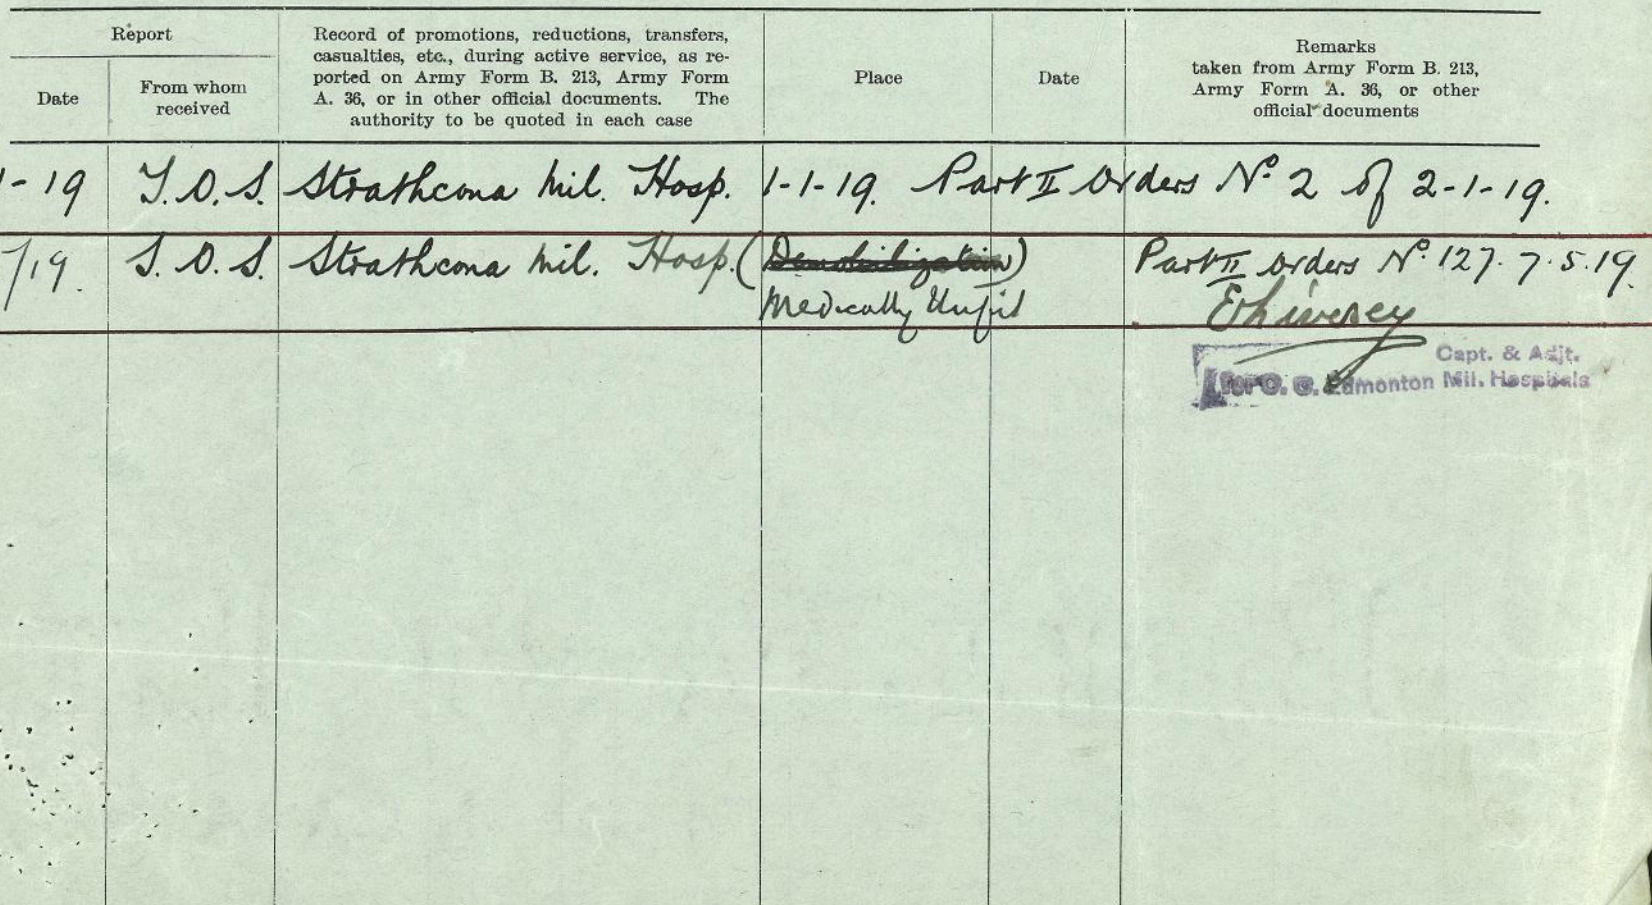 Report
Date
From whom
received
Record of promotions, reductions, transfers,
casualties, etc., during active service, as re-
ported on Army Form B. 213, Army Form
A. 36, or in other official documents. The
authority to be quoted in each case
Place
Date
Remarks
taken from Army Form B. 213,
Army Form A. 36, or other
official documents
-19 T.O.S. Strathcona Mil. Hosp. 1-1-19. Part II Orders No 2 of 2-1-19.
/19. S.O.S. Strathcona Mil. Hosp. (Demobilization) Part II Orders No. 127. 7.5.19.
Medically Unfit
Capt. & Adjt.
for O. C. Edmonton Mil. Hospitals